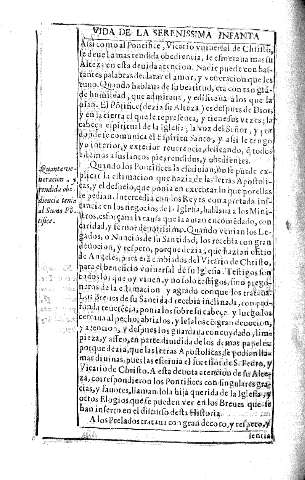 VIDA DE LA SERENISSIMA INFANTA
Assi como al Pontifice, Vicario vniuersal de Christo,
se deue la mas rendida obediencia, se esmeraua mas su
Alteza en esta deuida atencion. No ay
palabras declarar el amor, y veneracion que les
tuuo. Quando hablaua de su beatitud, era con tan grã
de humildad, que admiraua, y edificaua a los que la
oian. El Pontifice (dezia su Alteza) es despues de Dios
en la tierra el que le representa, y tiene sus vezes; la
cabeça espiritual de la Iglesia; la voz del Señor, y por
donde se comunica el Espiritu Santo, y assi le tengo
yo interior, y exterior reuerencia, deseando, q̃ todos
le amemos
Quando los Pontifices la escriuian, no se puede ex-
plicar la estimacion que hazia de las letras Apostoli-
cas, y el desuelo, que ponia en executar lo que por ellas
se pedian. Intercedia con los Reyes
cencia en los negocios de la Iglesia, hablaua a los Mini-
stros, esforçaua la causa que la auian encomendado, con
caridad, y feruor Quando venian los Le-
gados, o Nuncios de su Santidad, los recebia con gran
deuocion, y respeto, porque dezia, que hazian oficio
de Angeles, para era embiados del Vicario de Christo,
para el beneficio vniuersal de su Iglesia. Testigos son
todos los que oy viuen, y no solo testigos, sino prego-
neros de la estimacion y agrado con que los trataua.
Los breues de su Santidad recebia inclinada, con pro-
funda reuerencia, ponia los sobre su cabeça, y luego los
cercaua al pecho, abrialos, y leialos con gran deuocion,
y atencion, y despues los guardaua con cuydado, lim-
pieza, y asseo, en parte diuidida de los demas papeles;
porque dezia, que las letras Apostolicas se podian lla-
mar diuinas, pues las escriuia el sucessor de S. Pedro, y
Vicario de Christo. A esta deuota atencion de su Alte-
za, correspondieron los Pontifices con singulares gra-
cias, y fauores, llamandola hija querida de la Iglesia, y
otros Elogios, que se pueden ver en los Breues que se
han inserto en el discurso desta Historia.
A los Prelados trataua con gran decoro, y respeto, y
sentia
Quanta ve-
neracion y
rendida obe-
diencia tenia
al Sumo Põ-
tifice.